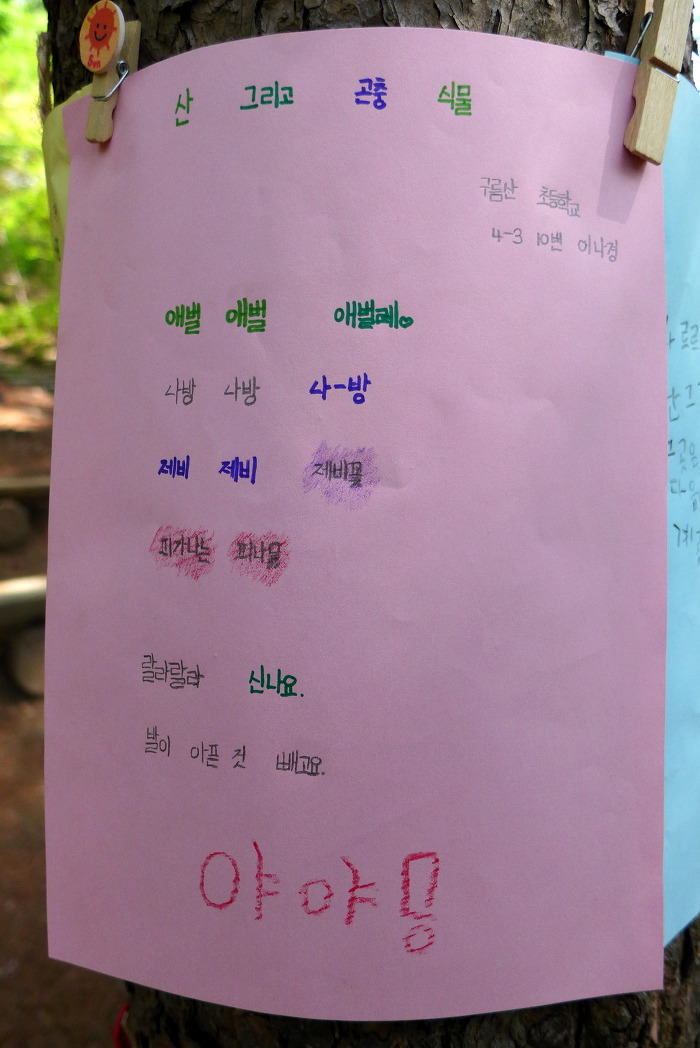 Sun
산 그리고 곤충 식물
구름산 초등학교
4-3 10번 이나경
애벌 애벌 애벌레♥
나방 나방 나-방
제비 제비 제비꽃
피가나는 피나물
랄라랄라 신나요.
발이 아픈 것 빼고요.
야야밍